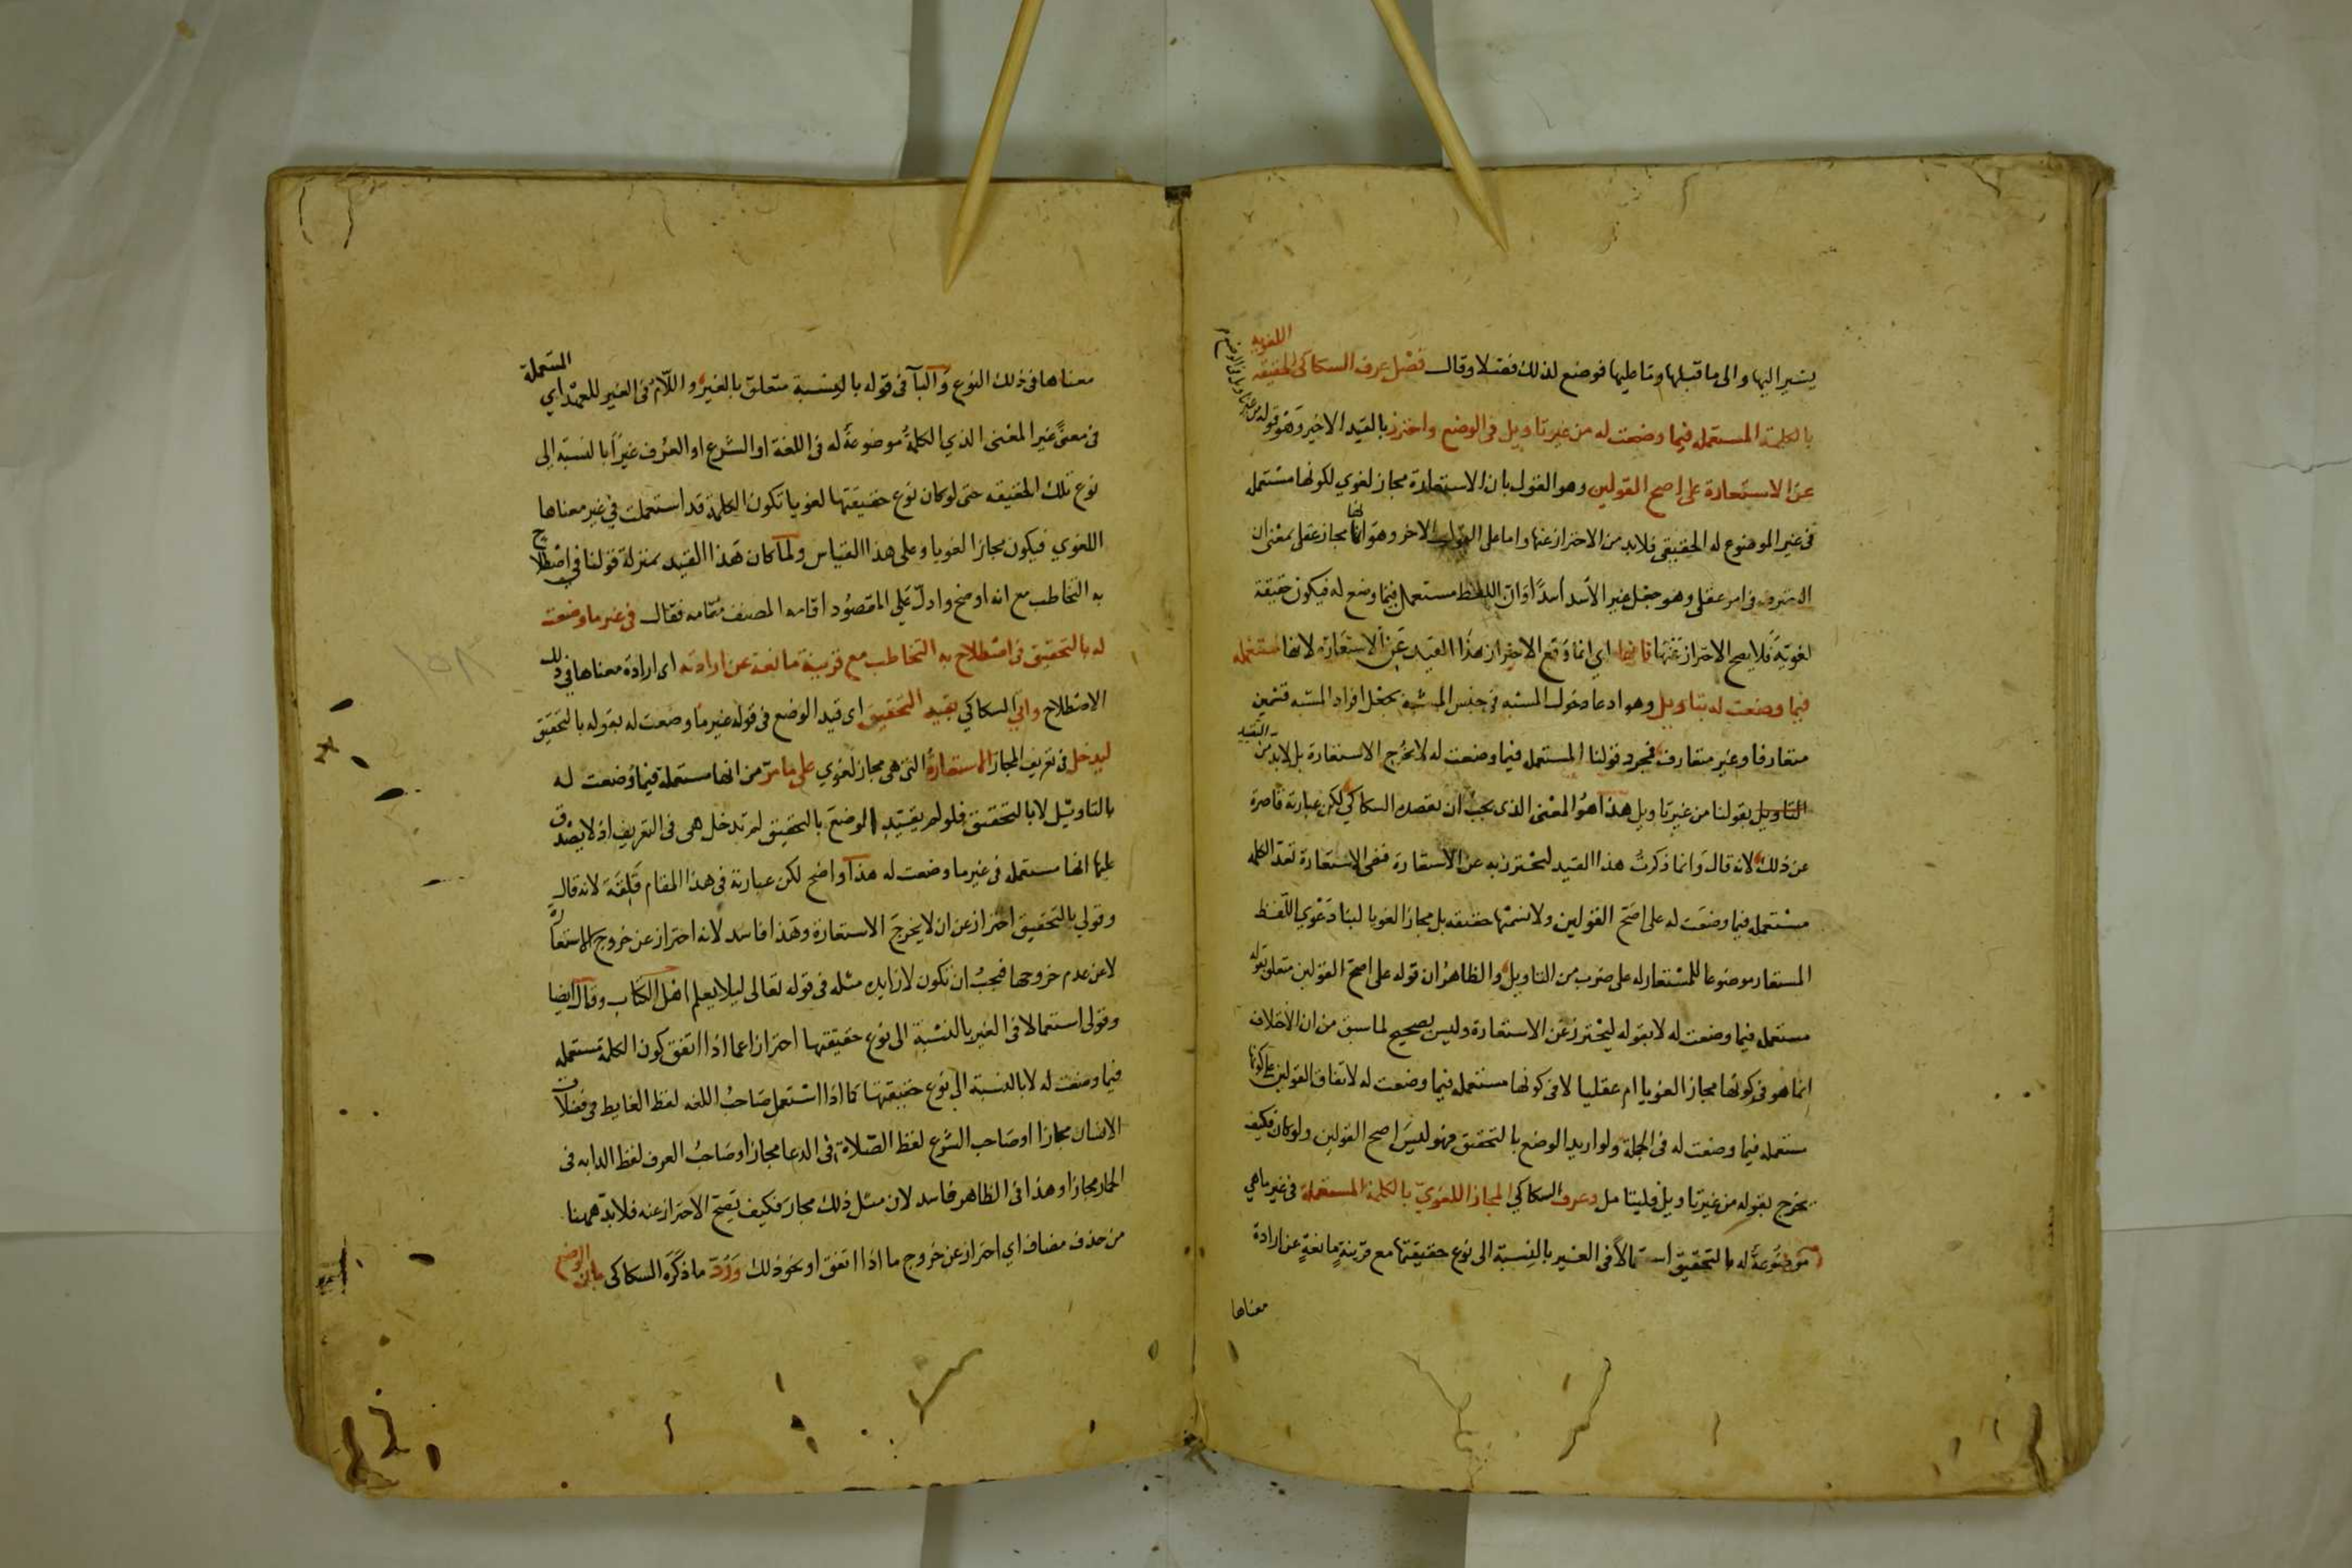 يشير اليها والى ما قبلها وما عليها فوضع لذلك فصلا وقال فصل عرف السكاكى الحقيقة اللغويه
بالكلمة المستعمله فيما وضعت له من غير تاويل فى الوضع واحترز بالقيد الاخير وهو قوله من غير تاويل فى الوضع
عن الاستعارة على اصح القولين وهو القول بان الاستعارة مجاز لغوي لكونها مستعمله
فى غير الموضوع له الحقيقى فلابد من الاحتراز عنها واما على القول الاخر وهو انها مجاز عقلى بمعنى ان
التصرف فى امر عقلى وهو جعل غير الأسد أسدًا وان اللفظ مستعمل فيما وضع له فيكون حقيقة
لغويّة فلا يصح الاحتراز عنها فانها اي انما وقع الاحتراز بهذا القيد عن الاستعارة لانها مستعمله
فيما وضعت له بتاويل وهو ادعا دخول المشبه فى جنس المشبه به بجعل افراد المشبه به قسمين
متعارفا وغير متعارف فمجرد قولنا المستعمله فيما وضعت له لا يخرج الاستعارة بل لابد من التقييد
بقولنا من غير تاويل هذا هو المعنى الذى يجب ان يقصده السكاكي لكن عبارته قاصرة
عن ذلك لانه قال وانما ذكرتُ هذا القيد ليحترز به عن الاستعارة ففى الاستعارة تعد الكلمه
مستعمله فيما وضعت له على اصح القولين ولا نسميها حقيقه بل مجازا لغويا لبنا دعوي اللفظ
المستعار موضوعا للمستعار له على ضرب من التاويل والظاهر ان قوله على اصح القولين متعلق بقوله
مستعمله فيما وضعت له لا بقوله ليحترز عن الاستعارة وليس بصحيح لما سبق من ان الاختلاف
انما هو فى كونها مجازا لغويا ام عقليا لا فى كونها مستعمله فيما وضعت له لاتفاق القولين على كونها
مستعمله فيما وضعت له فى الجملة ولو اريد الوضع بالتحقيق فهو ليسَ اصح القولين ولو كان فكيف
يخرج بقوله من غير تاويل فليتامل وعرف السكاكي المجاز اللغويّ بالكلمة المستعملة فى غير ما هي
موضُوعة له بالتحقيق استعمالاً فى الغير بالنِسبة الى نوع حقيقتها مع قرينةٍ مانعةٍ عن ارادة
معناها
معناها فى ذلك النوع والبآ فى قوله بالنسبة متعلق بالغير واللام فى الغير للعهد اي المستعملة
فى معنًى غير المعنى الذي الكلمةُ موضوعةٌ له فى اللغة او الشرع او العرف غيرًا بالنسبة الى
نوع تلك الحقيقه حتى لو كان نوع حقيقتها لغويا تكون الكلمة قد استعملت في غير معناها
اللغوي فيكون مجازا لغويا وعلى هذا القياس ولما كان هذا القيد بمنزلة قولنا في اصطلاح
به التخاطب مع انه اوضح وادلّ على المقصُود اقامه المصنف مقامه فقال فى غير ما وضعت
له بالتحقيق فى اصطلاح به التخاطب مع قرينة مانعة عن ارادته اى ارادة معناها فى ذلك
الاصطلاح واتي السكاكي بقيد التحقيق اى قيد الوضع فى قوله غير ما وضعت له بقوله بالتحقيق
ليدخل فى تعريف المجاز الاستعارةُ التى هى مجاز لغوي على ما مرّ من انها مستعملة فيما وُضعت له
بالتاويل لا بالتحقيق فلو لم يقيّد الوضعَ بالتحقيق لم تدخل هى فى التعريف اذ لا يصدق
عليها انها مستعمله فى غير ما وضعت له هذا واضح لكن عبارته فى هذا المقام قَلِقَة لانه قال
وقولي بالتحقيق احتراز عن ان لا يخرجَ الاستعارة وهَذا فاسد لانه احتراز عن خروج الاستعارة
لا عن عدم خروجها فيجبُ ان تكون لا زايده مثله فى قوله تعالى ليلا يعلم اهل الكتاب وقال ايضا
وقولى استعمالا فى الغير بالنسبة الى نوع حقيقتها احترازا عما اذا اتفق كون الكلمة مستعمله
فيما وضعت له لا بالنسبة الى نوع حقيقتها كما اذا استعمل صاحبُ اللغه لفظ الغايط فى فضلات
الانسان مجازا او صاحب الشرع لفظ الصّلاة فى الدعا مجازا او صاحبُ العرف لفظ الدابه فى
الحمار مجازا وهذا فى الظاهر فاسد لان مثل ذلك مجاز فكيف يَصِحّ الاحتراز عنه فلابدّ ههنا
من حذف مضاف اي احتراز عن خروج ما اذا اتفق او نحو ذلك ورُدّ ما ذكرَه السكاكى بان الوضع